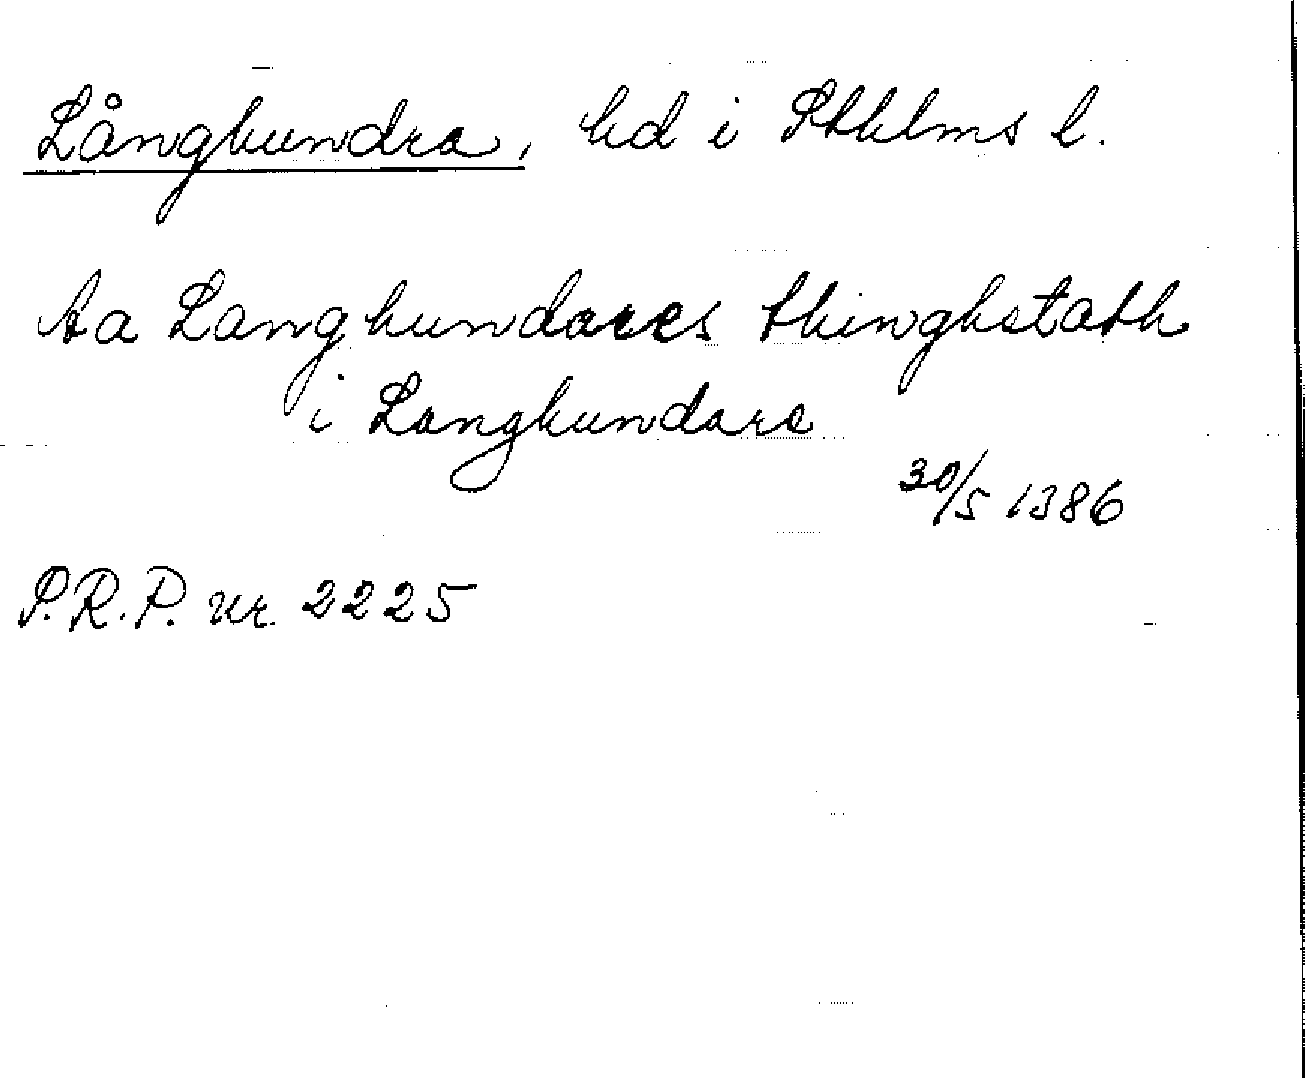 Långhundra, hd i Sthlms l.
Aa Langhundares thinghstath
i Langhundare
30/5 1386
P.R.P. nr. 2225